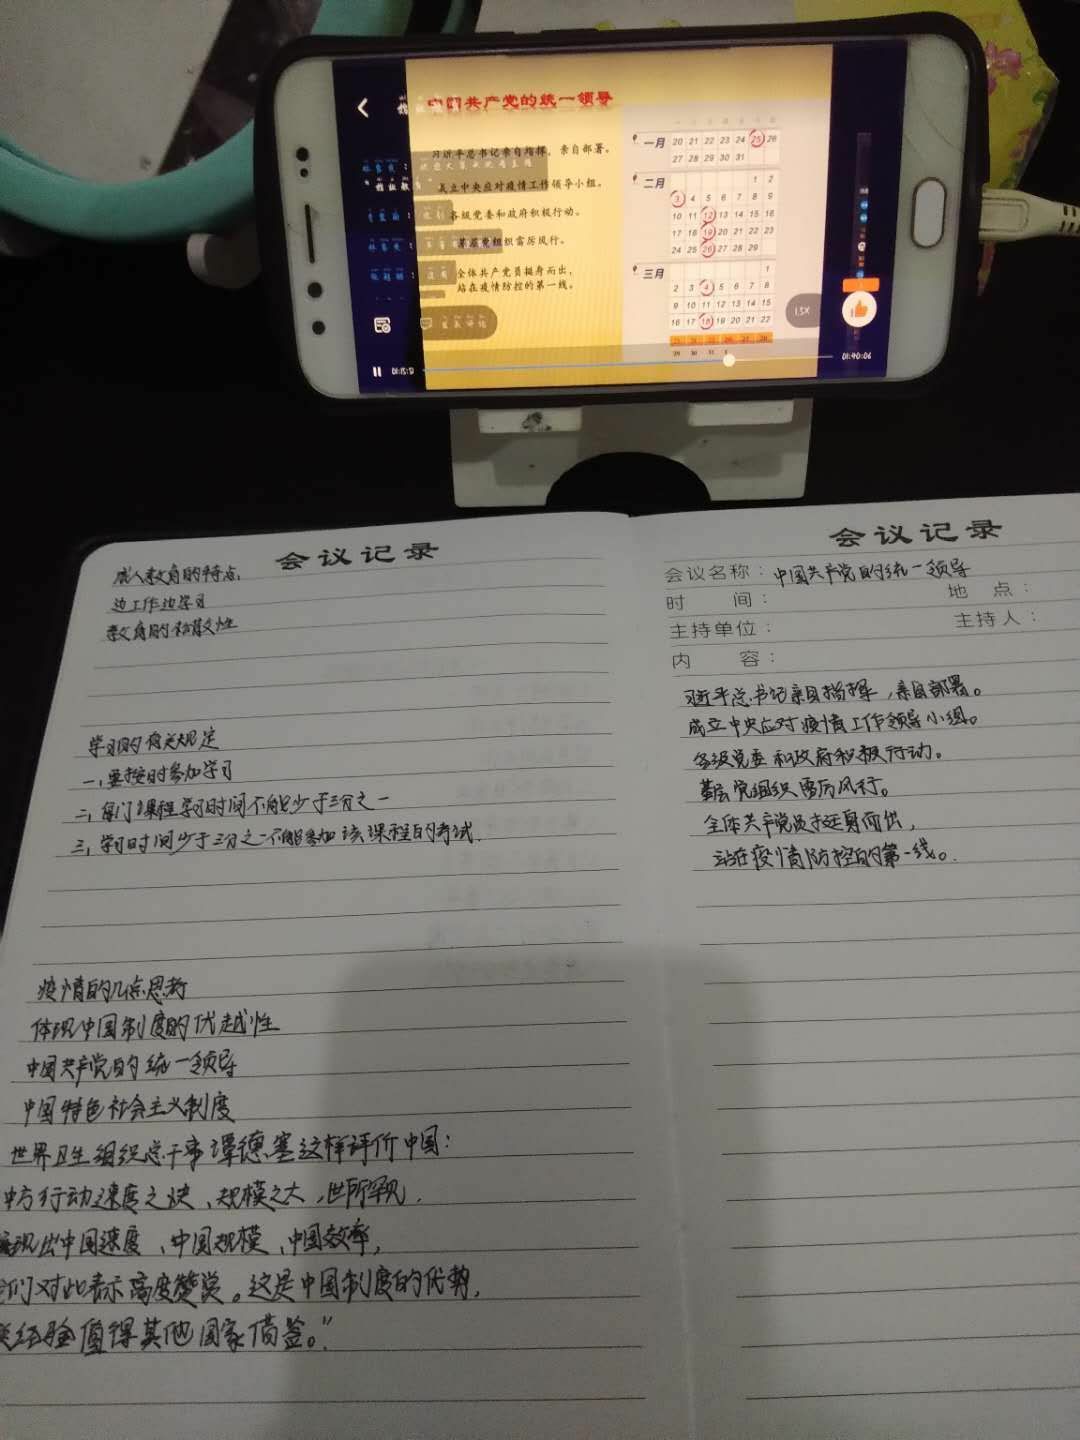 中国共产党的统一领导
习近平总书记亲自指挥、亲自部署。
成立中央应对疫情工作领导小组。
各级党委和政府积极行动。
基层党组织雷厉风行。
全体共产党员挺身而出，
站在疫情防控的第一线。
一月 20 21 22 23 24 25 26
27 28 29 30 31
二月 1 2
3 4 5 6 7 8 9
10 11 12 13 14 15 16
17 18 19 20 21 22 23
24 25 26 27 28 29
三月 1
2 3 4 5 6 7 8
9 10 11 12 13 14 15
16 17 18 19 20 21 22
1.5X
01:40:06
会议记录
成人教育的特点,
边工作边学习
教育的松散性
学习的有关规定
一,要按时参加学习
二,每门课程学习时间不能少于三分之一
三,学习时间少于三分之一不能参加该课程的考试.
疫情的几点思考
体现中国制度的优越性
中国共产党的统一领导
中国特色社会主义制度
世界卫生组织总干事谭德塞这样评价中国:
中方行动速度之快、规模之大,世所罕见.
展现出中国速度、中国规模、中国效率,
我们对此表示高度赞赏。这是中国制度的优势,
经验值得其他国家借鉴。"
会议记录
会议名称: 中国共产党的统一领导
时 间: 地 点:
主持单位: 主持人:
内 容:
习近平总书记亲自指挥,亲自部署。
成立中央应对疫情工作领导小组。
各级党委和政府积极行动。
基层党组织雷厉风行。
全体共产党员挺身而出,
站在疫情防控的第一线。